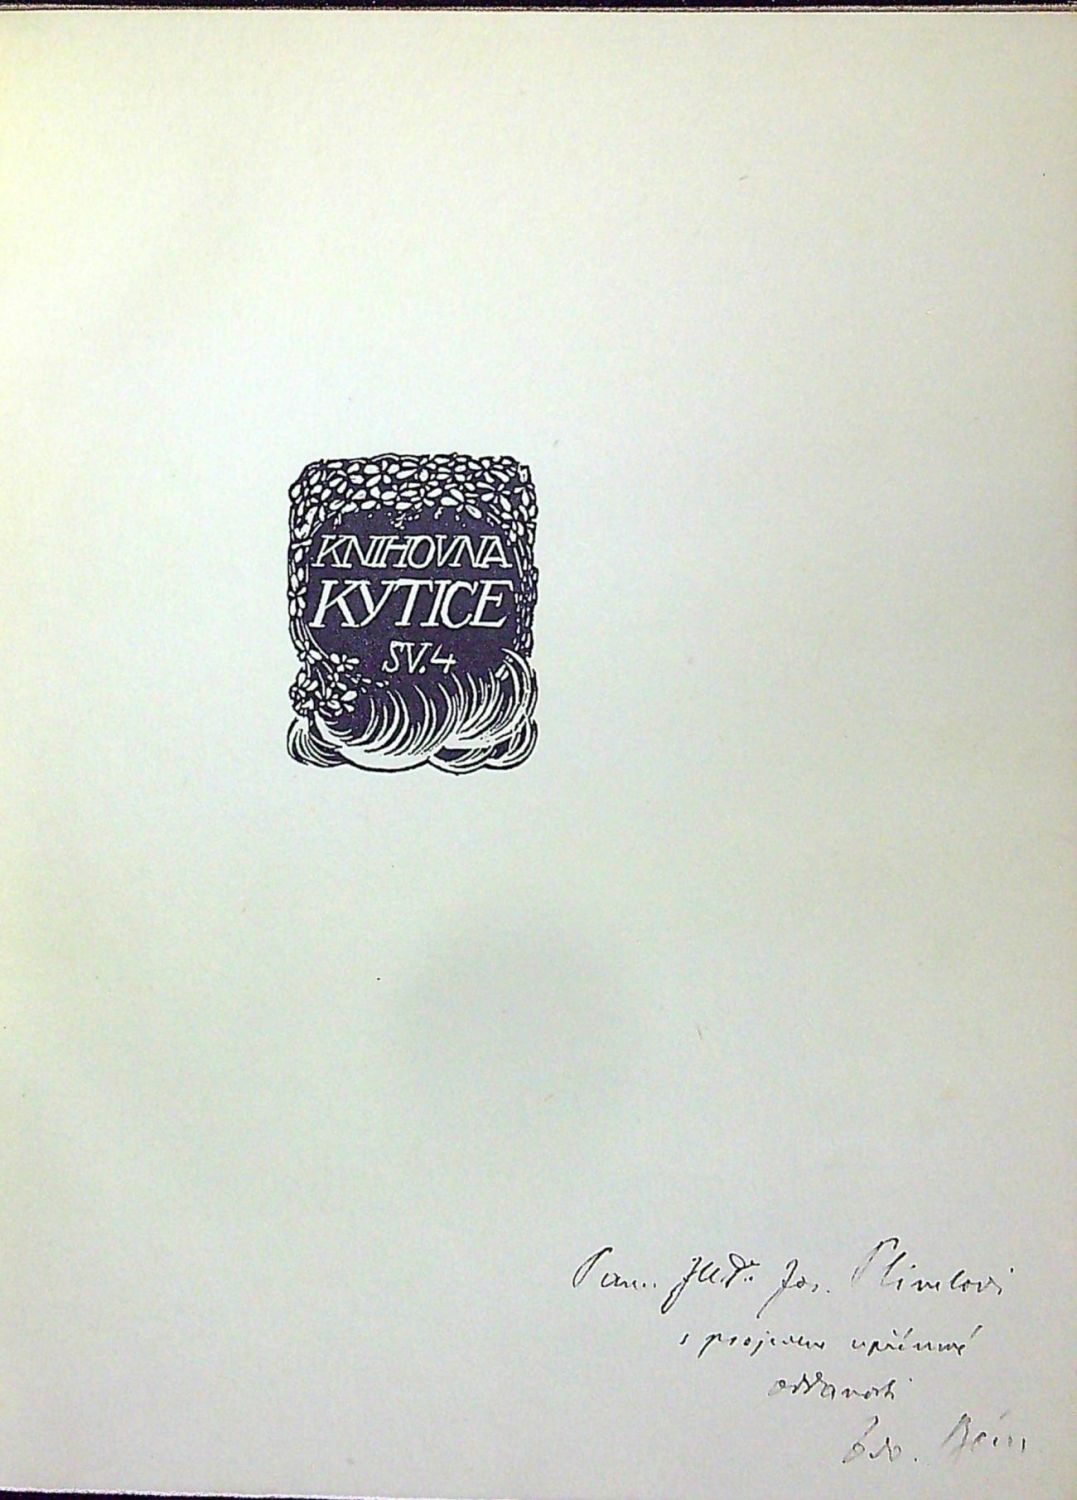 KNIHOVNA
KYTICE
SV. 4
Panu JUDr. Jos.
s projevem upřímné
oddanosti
Edv.